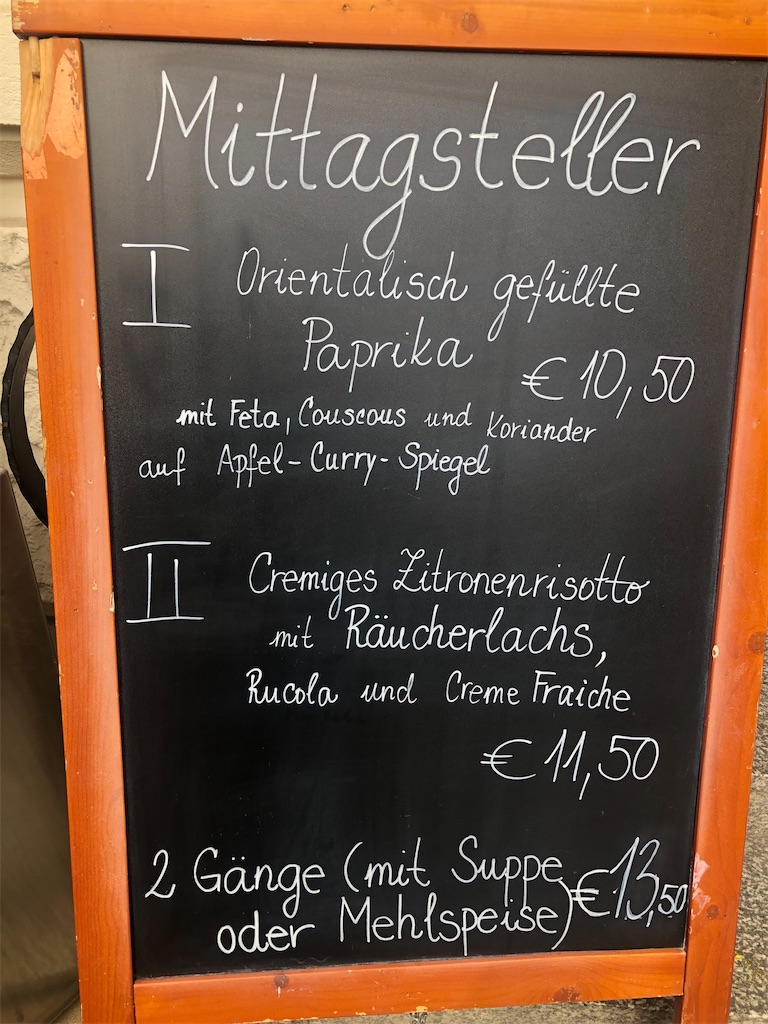 Mittagsteller
I Orientalisch gefüllte
Paprika
€ 10,50
mit Feta, Couscous und Koriander
auf Apfel-Curry-Spiegel
II Cremiges Zitronenrisotto
mit Räucherlachs,
Rucola und Creme Fraiche
€ 11,50
2 Gänge (mit Suppe
oder Mehlspeise) € 13,50